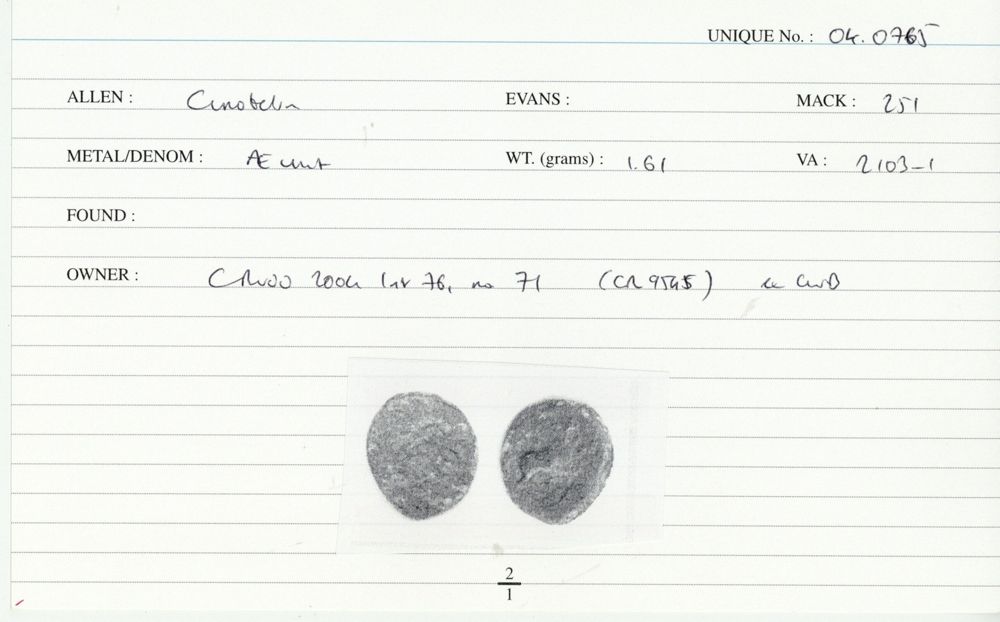 UNIQUE No. : 04.0765
ALLEN : Cunobelin EVANS : MACK : 251
METAL/DENOM : Æ unit WT. (grams) : 1.61 VA : 2103-1
FOUND :
OWNER : 2004 76, no 71 (CR 9545)
2
1